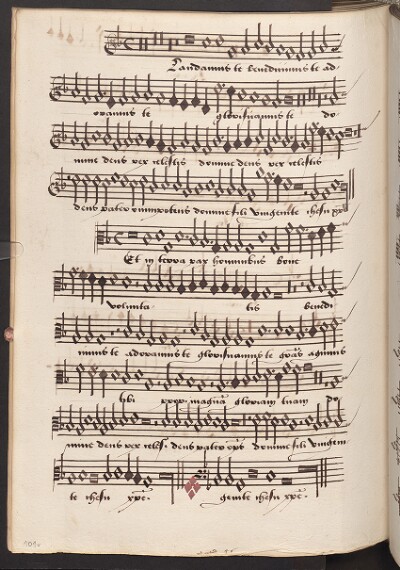 Laudamus te benedicimus te ad-
oramus te glorificamus te do
mine deus rex celestis domine deus rex celestis
deus pater omnipotens domine fili unigenite ihesu xpe
Et in terra pax hominibus bone
volunta tis benedi
mus te adoramus te glorificamus te gratias agimus
tibi propter magnam gloriam tuam do
mine deus rex celest. deus pater ops domine fili unigeni
te ihesu xpe. genite ihesu xpe.